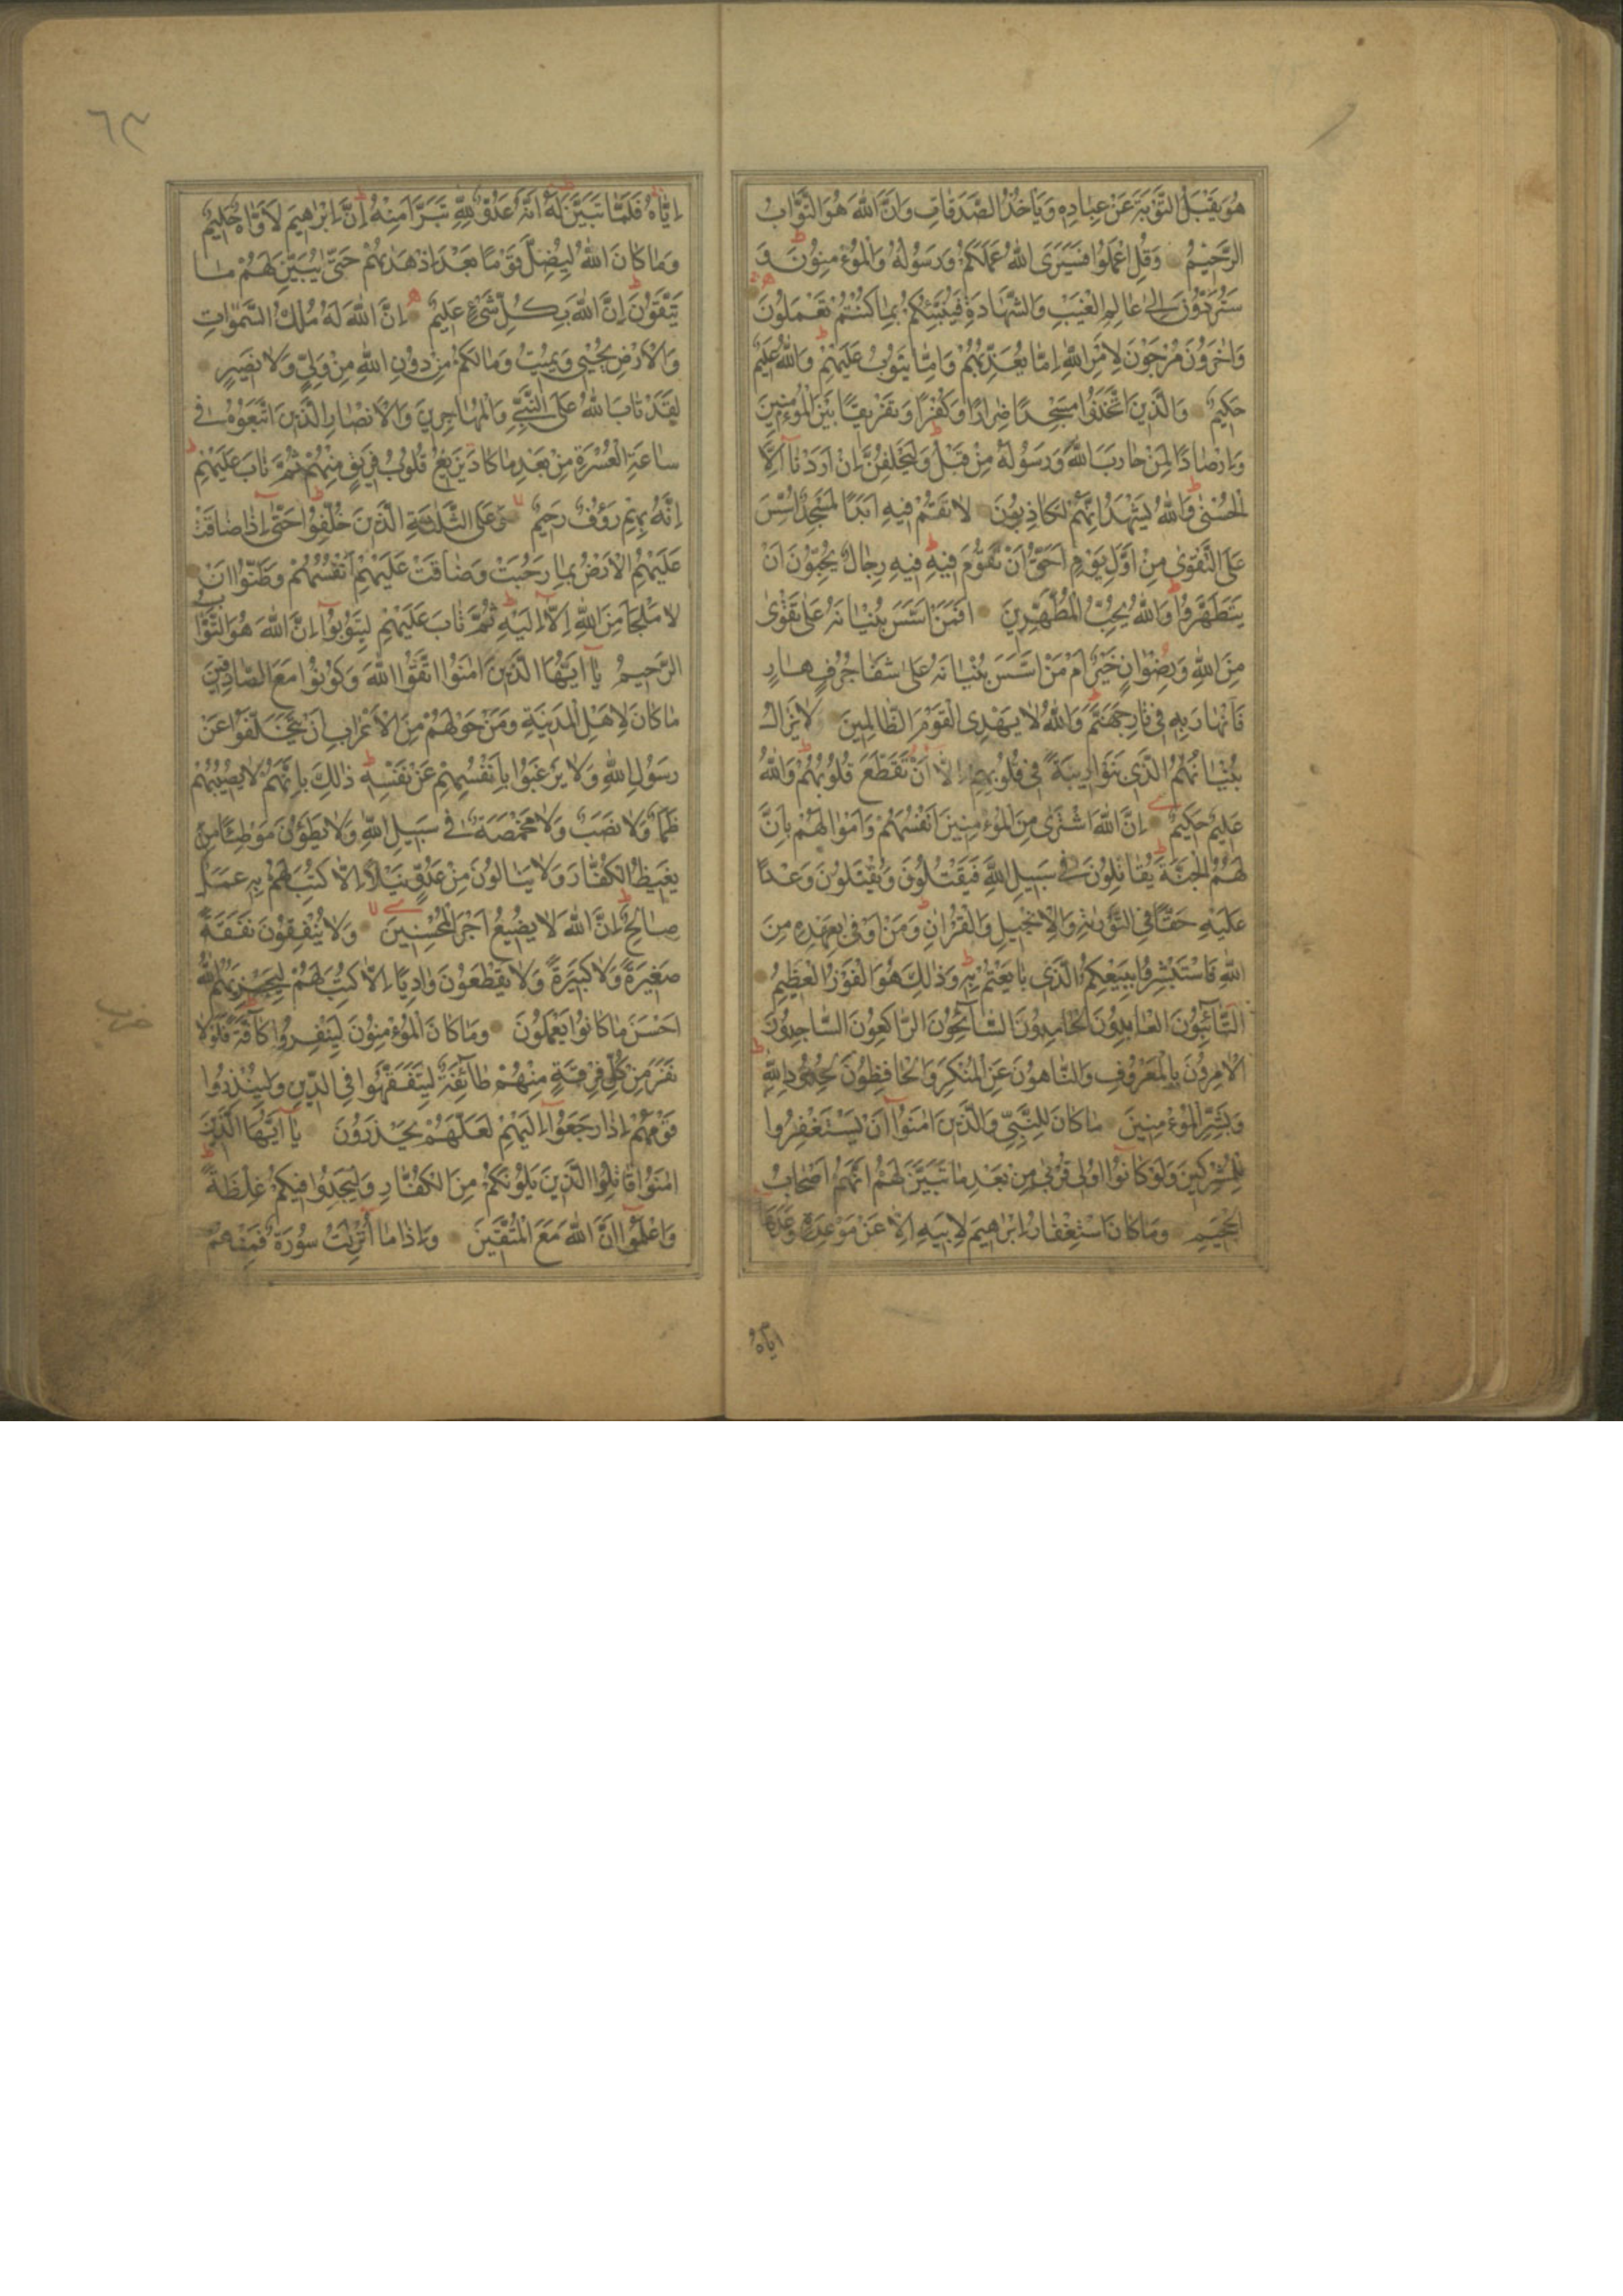 هُوَ يَقْبَلُ التَّوْبَةَ عَنْ عِبَادِهِ وَيَأْخُذُ الصَّدَقَاتِ وَاَنَّ اللّٰهَ هُوَ التَّوَّابُ
الرَّحِيْمُ وَقُلِ اعْمَلُوا فَسَيَرَى اللّٰهُ عَمَلَكُمْ وَرَسُولُهُ وَالْمُؤْمِنُوْنَ وَ
سَتُرَدُّوْنَ اِلٰى عَالِمِ الْغَيْبِ وَالشَّهَادَةِ فَيُنَبِّئُكُمْ بِمَا كُنْتُمْ تَعْمَلُوْنَ
وَاٰخَرُوْنَ مُرْجَوْنَ لِاَمْرِ اللّٰهِ اِمَّا يُعَذِّبُهُمْ وَاِمَّا يَتُوْبُ عَلَيْهِمْ وَاللّٰهُ عَلِيْمٌ
حَكِيْمٌ وَالَّذِيْنَ اتَّخَذُوْا مَسْجِدًا ضِرَارًا وَكُفْرًا وَتَفْرِيْقًا بَيْنَ الْمُؤْمِنِيْنَ
وَاِرْصَادًا لِمَنْ حَارَبَ اللّٰهَ وَرَسُوْلَهُ مِنْ قَبْلُ وَلَيَحْلِفُنَّ اِنْ اَرَدْنَا اِلَّا
الْحُسْنٰى وَاللّٰهُ يَشْهَدُ اِنَّهُمْ لَكَاذِبُوْنَ لَا تَقُمْ فِيْهِ اَبَدًا لَمَسْجِدٌ اُسِّسَ
عَلَى التَّقْوٰى مِنْ اَوَّلِ يَوْمٍ اَحَقُّ اَنْ تَقُوْمَ فِيْهِ فِيْهِ رِجَالٌ يُحِبُّوْنَ اَنْ
يَتَطَهَّرُوْا وَاللّٰهُ يُحِبُّ الْمُطَّهِّرِيْنَ اَفَمَنْ اَسَّسَ بُنْيَانَهُ عَلٰى تَقْوٰى
مِنَ اللّٰهِ وَرِضْوَانٍ خَيْرٌ اَمْ مَنْ اَسَّسَ بُنْيَانَهُ عَلٰى شَفَا جُرُفٍ هَارٍ
فَانْهَارَ بِهِ فِيْ نَارِ جَهَنَّمَ وَاللّٰهُ لَا يَهْدِى الْقَوْمَ الظَّالِمِيْنَ لَا يَزَالُ
بُنْيَانُهُمُ الَّذِيْ بَنَوْا رِيْبَةً فِيْ قُلُوْبِهِمْ اِلَّا اَنْ تَقَطَّعَ قُلُوْبُهُمْ وَاللّٰهُ
عَلِيْمٌ حَكِيْمٌ اِنَّ اللّٰهَ اشْتَرٰى مِنَ الْمُؤْمِنِيْنَ اَنْفُسَهُمْ وَاَمْوَالَهُمْ بِاَنَّ
لَهُمُ الْجَنَّةَ يُقَاتِلُوْنَ فِيْ سَبِيْلِ اللّٰهِ فَيَقْتُلُوْنَ وَيُقْتَلُوْنَ وَعْدًا
عَلَيْهِ حَقًّا فِى التَّوْرٰيةِ وَالْاِنْجِيْلِ وَالْقُرْاٰنِ وَمَنْ اَوْفٰى بِعَهْدِهِ مِنَ
اللّٰهِ فَاسْتَبْشِرُوْا بِبَيْعِكُمُ الَّذِيْ بَايَعْتُمْ بِهِ وَذٰلِكَ هُوَ الْفَوْزُ الْعَظِيْمُ
اَلتَّآئِبُوْنَ الْعَابِدُوْنَ الْحَامِدُوْنَ السَّآئِحُوْنَ الرَّاكِعُوْنَ السَّاجِدُوْنَ
الْاٰمِرُوْنَ بِالْمَعْرُوْفِ وَالنَّاهُوْنَ عَنِ الْمُنْكَرِ وَالْحَافِظُوْنَ لِحُدُوْدِ اللّٰهِ
وَبَشِّرِ الْمُؤْمِنِيْنَ مَا كَانَ لِلنَّبِيِّ وَالَّذِيْنَ اٰمَنُوْا اَنْ يَسْتَغْفِرُوا
لِلْمُشْرِكِيْنَ وَلَوْ كَانُوْا اُولِيْ قُرْبٰى مِنْ بَعْدِ مَا تَبَيَّنَ لَهُمْ اَنَّهُمْ اَصْحَابُ
الْجَحِيْمِ وَمَا كَانَ اسْتِغْفَارُ اِبْرٰهِيْمَ لِاَبِيْهِ اِلَّا عَنْ مَوْعِدَةٍ وَعَدَهَا
اياه
٦٣
اِيَّاهُ فَلَمَّا تَبَيَّنَ لَهُ اَنَّهُ عَدُوٌّ لِلّٰهِ تَبَرَّاَ مِنْهُ اِنَّ اِبْرٰهِيْمَ لَاَوَّاهٌ حَلِيْمٌ
وَمَا كَانَ اللّٰهُ لِيُضِلَّ قَوْمًا بَعْدَ اِذْ هَدٰيهُمْ حَتّٰى يُبَيِّنَ لَهُمْ مَا
يَتَّقُوْنَ اِنَّ اللّٰهَ بِكُلِّ شَيْءٍ عَلِيْمٌ اِنَّ اللّٰهَ لَهُ مُلْكُ السَّمٰوَاتِ
وَالْاَرْضِ يُحْيِيْ وَيُمِيْتُ وَمَا لَكُمْ مِنْ دُوْنِ اللّٰهِ مِنْ وَلِيٍّ وَلَا نَصِيْرٍ
لَقَدْ تَابَ اللّٰهُ عَلَى النَّبِيِّ وَالْمُهَاجِرِيْنَ وَالْاَنْصَارِ الَّذِيْنَ اتَّبَعُوْهُ فِيْ
سَاعَةِ الْعُسْرَةِ مِنْ بَعْدِ مَا كَادَ يَزِيْغُ قُلُوْبُ فَرِيْقٍ مِنْهُمْ ثُمَّ تَابَ عَلَيْهِمْ
اِنَّهُ بِهِمْ رَؤُفٌ رَحِيْمٌ وَعَلَى الثَّلٰثَةِ الَّذِيْنَ خُلِّفُوْا حَتّٰى اِذَا ضَاقَتْ
عَلَيْهِمُ الْاَرْضُ بِمَا رَحُبَتْ وَضَاقَتْ عَلَيْهِمْ اَنْفُسُهُمْ وَظَنُّوْا اَنْ
لَا مَلْجَاَ مِنَ اللّٰهِ اِلَّا اِلَيْهِ ثُمَّ تَابَ عَلَيْهِمْ لِيَتُوْبُوْا اِنَّ اللّٰهَ هُوَ التَّوَّابُ
الرَّحِيْمُ يَا اَيُّهَا الَّذِيْنَ اٰمَنُوا اتَّقُوا اللّٰهَ وَكُوْنُوْا مَعَ الصَّادِقِيْنَ
مَا كَانَ لِاَهْلِ الْمَدِيْنَةِ وَمَنْ حَوْلَهُمْ مِنَ الْاَعْرَابِ اَنْ يَتَخَلَّفُوْا عَنْ
رَسُوْلِ اللّٰهِ وَلَا يَرْغَبُوْا بِاَنْفُسِهِمْ عَنْ نَفْسِهِ ذٰلِكَ بِاَنَّهُمْ لَا يُصِيْبُهُمْ
ظَمَاٌ وَلَا نَصَبٌ وَلَا مَخْمَصَةٌ فِيْ سَبِيْلِ اللّٰهِ وَلَا يَطَؤُنَ مَوْطِئًا
يَغِيْظُ الْكُفَّارَ وَلَا يَنَالُوْنَ مِنْ عَدُوٍّ نَيْلًا اِلَّا كُتِبَ لَهُمْ بِهِ عَمَلٌ
صَالِحٌ اِنَّ اللّٰهَ لَا يُضِيْعُ اَجْرَ الْمُحْسِنِيْنَ وَلَا يُنْفِقُوْنَ نَفَقَةً
صَغِيْرَةً وَلَا كَبِيْرَةً وَلَا يَقْطَعُوْنَ وَادِيًا اِلَّا كُتِبَ لَهُمْ لِيَجْزِيَهُمُ اللّٰهُ
اَحْسَنَ مَا كَانُوْا يَعْمَلُوْنَ وَمَا كَانَ الْمُؤْمِنُوْنَ لِيَنْفِرُوْا كَآفَّةً فَلَوْلَا
نَفَرَ مِنْ كُلِّ فِرْقَةٍ مِنْهُمْ طَآئِفَةٌ لِيَتَفَقَّهُوْا فِى الدِّيْنِ وَلِيُنْذِرُوْا
قَوْمَهُمْ اِذَا رَجَعُوْا اِلَيْهِمْ لَعَلَّهُمْ يَحْذَرُوْنَ يَا اَيُّهَا الَّذِيْنَ
اٰمَنُوْا قَاتِلُوا الَّذِيْنَ يَلُوْنَكُمْ مِنَ الْكُفَّارِ وَلْيَجِدُوْا فِيْكُمْ غِلْظَةً
وَاعْلَمُوْا اَنَّ اللّٰهَ مَعَ الْمُتَّقِيْنَ وَاِذَا مَا اُنْزِلَتْ سُوْرَةٌ فَمِنْهُمْ
حزب